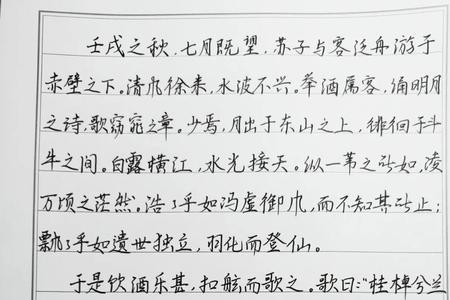 壬戌之秋，七月既望，苏子与客泛舟游于
赤壁之下。清风徐来，水波不兴。举酒属客，诵明月
之诗，歌窈窕之章。少焉，月出于东山之上，徘徊于斗
牛之间。白露横江，水光接天。纵一苇之所如，凌
万顷之茫然。浩浩乎如冯虚御风，而不知其所止；
飘飘乎如遗世独立，羽化而登仙。
于是饮酒乐甚，扣舷而歌之。歌曰：“桂棹兮兰